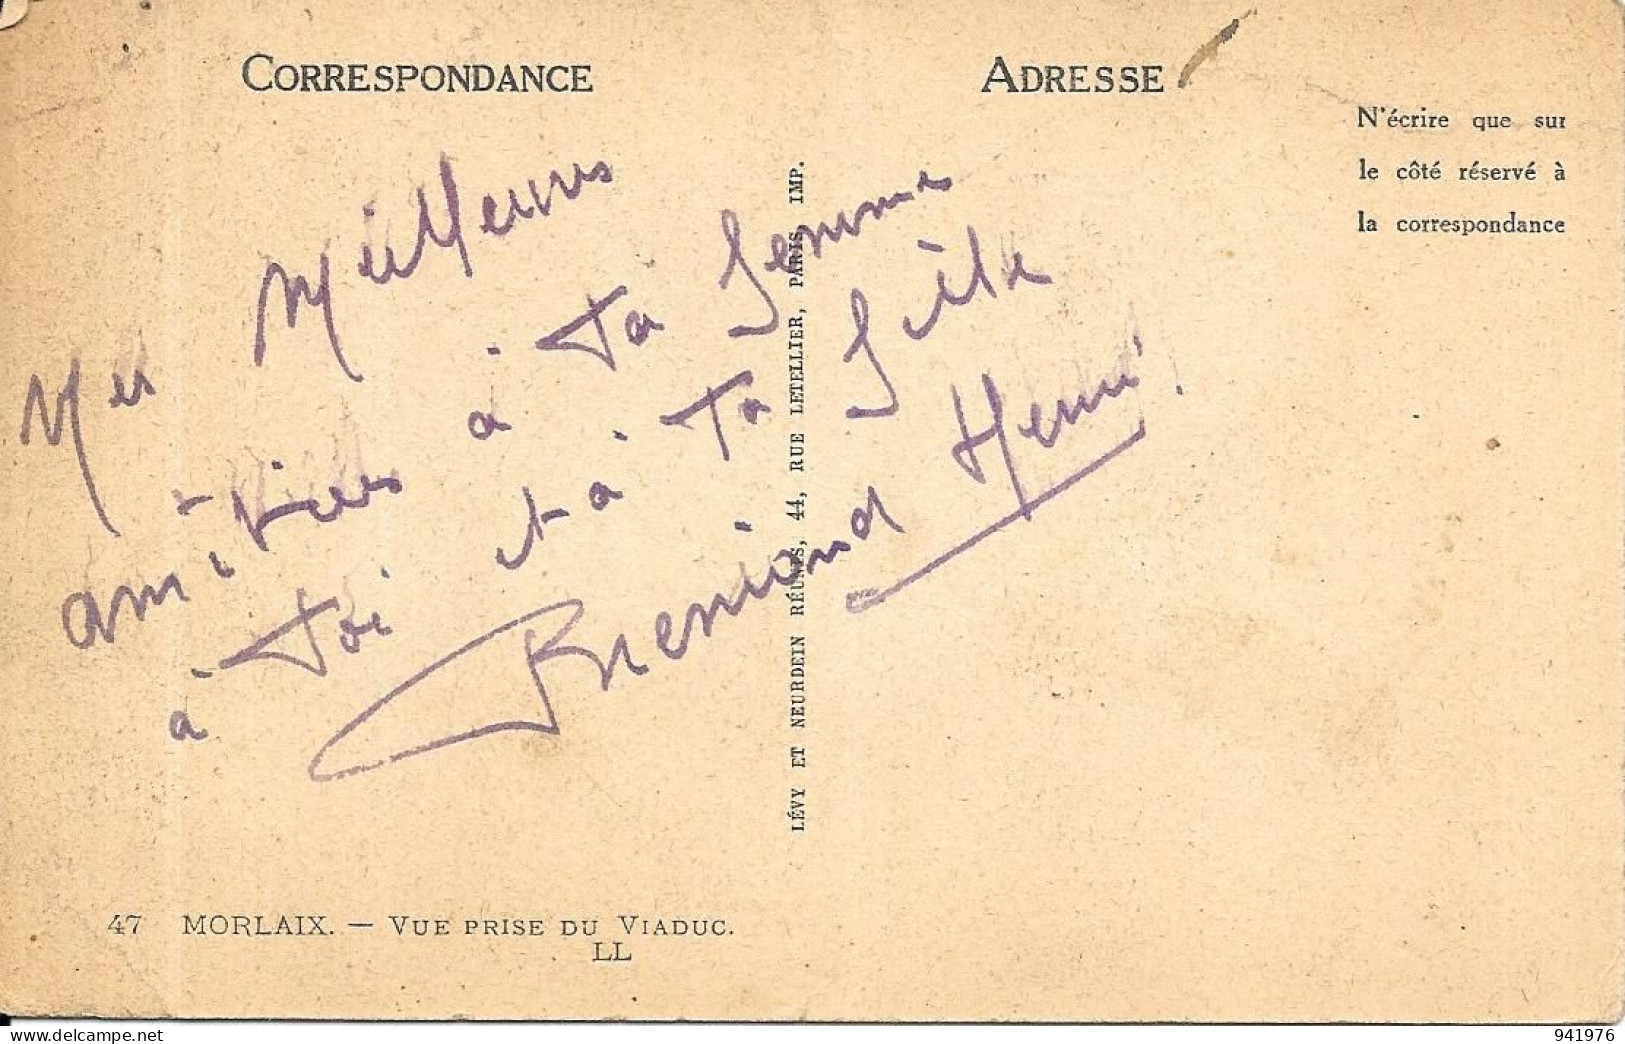 CORRESPONDANCE
ADRESSE
N'écrire que sur
le côté réservé à
la correspondance
Mes Meilleures
amitiés à ta femme
à toi et à ta
Bremond Henri
LÉVY ET NEURDEIN RÉUNIS, 44, RUE LETELLIER, PARIS IMP.
47 MORLAIX. — VUE PRISE DU VIADUC.
LL
www.delcampe.net
ma collection
941976